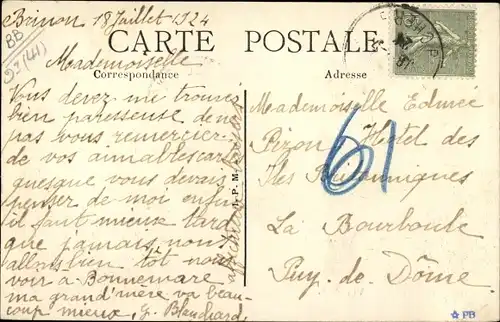 Brinon 18 Juillet 1924
BB
92 (41)
CARTE POSTALE
Correspondance
Adresse
Mademoiselle
Vous devez me trouver
bien paresseuse de ne
pas vous remercier
de vos aimables cartes
quesque vous devais
penser de moi enfin
il faut mieux tard
que jamais, nous
allons bien tôt nous
voir à Bonnemare
ma grand'mère va beau-
coup mieux, G. Blanchard,
I. P. M.
Mademoiselle Edmée
Pizon Hôtel des
Iles Britanniques
La Bourboule
Puy-de-Dôme
61
☆ PB